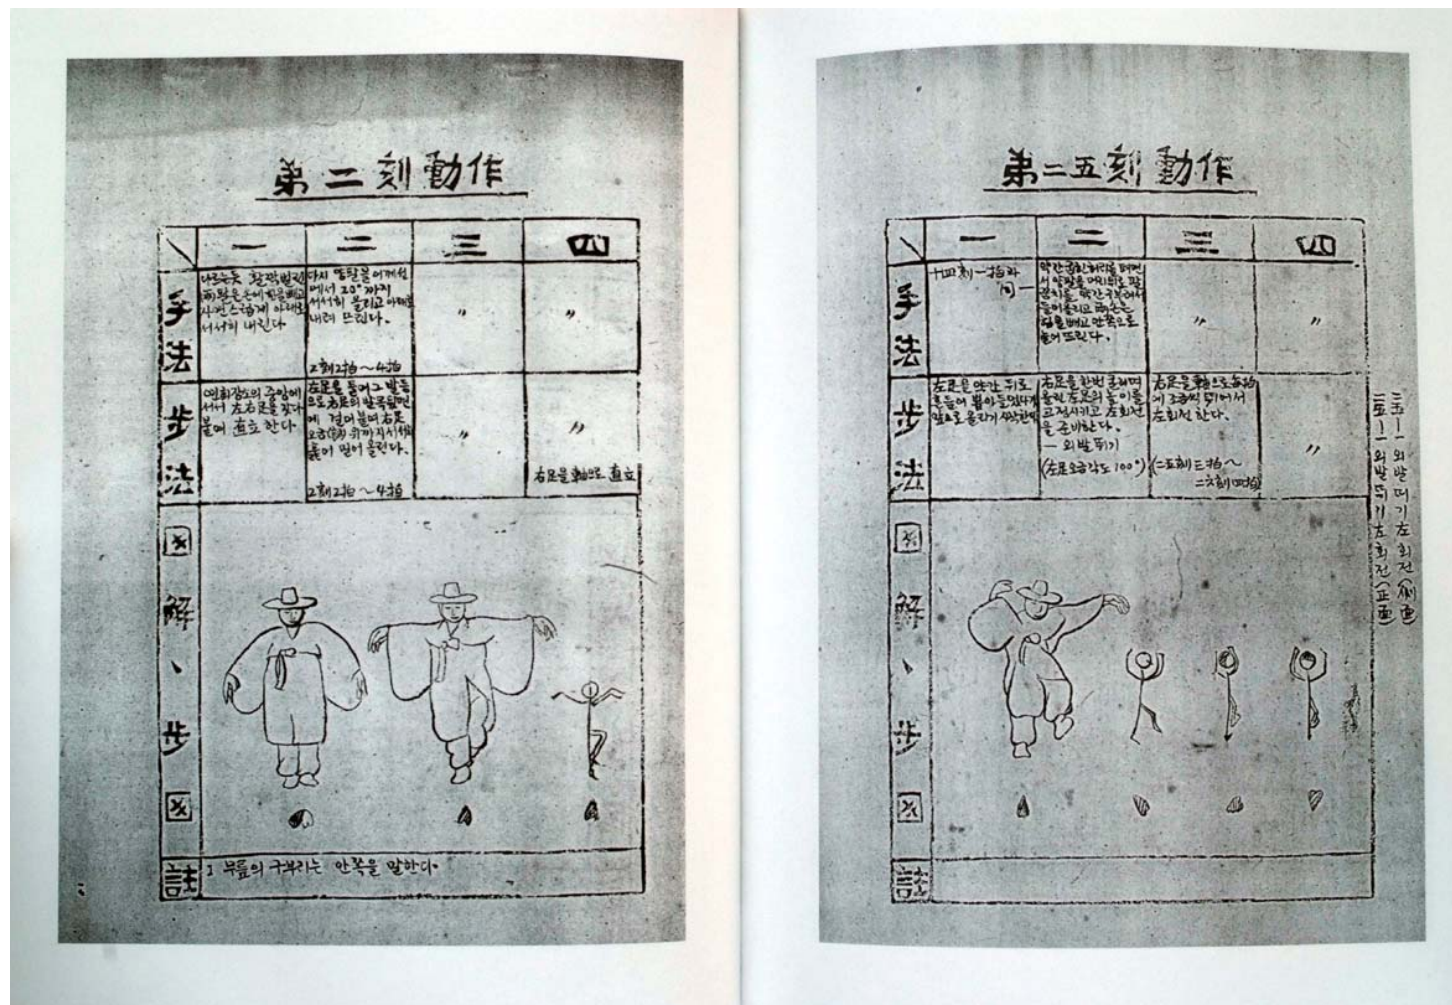 第二刻動作
一 二 三 四
手法
나르는듯 활짝벌린
(兩)팔은 손에 힘을 빼고
자연스럽게 아래로
서서히 내린다
다시 양팔을 어깨선
에서 20°까지
서서히 올리고 아래로
내려 뜨린다.
2刻2拍～4拍
〃
〃
步法
연희장소의 중앙에
서서 左右足을 맞다
붙여 直立한다.
左足을 들어 그 발등
으로 右足의 발목뒷면
에 걸어붙여 右足
오금 위까지 서서히
훑어 밀어 올린다.
2刻2拍～4拍
〃
〃
右足을 軸으로 直立
図解、步図
註
1 무릎의 구부리는 안쪽을 말한다.
第二五刻動作
一 二 三 四
手法
十四刻一拍과
同一
약간 굽힌 허리를 펴면
서 양팔을 머리위로 팔
꿈치를 약간 구부려서
들어올리고 兩손은
힘을 빼고 안쪽으로
늘어뜨린다.
〃
〃
步法
左足을 약간 뒤로
앞으로 올리기 시작한다
右足을 한번 굴러며
올린 左足의 높이를
고정시키고 左회전
을 준비한다.
— 외발뛰기
(左足오금각도 100°)
右足을 軸으로 每拍
에 조금씩 뛰어서
左회전 한다.
(二五刻三拍～
二六刻四拍)
〃
図解、步図
註
二五—一 외발뛰기 左회전 (側面)
二五—一 외발뛰기 左회전 (正面)